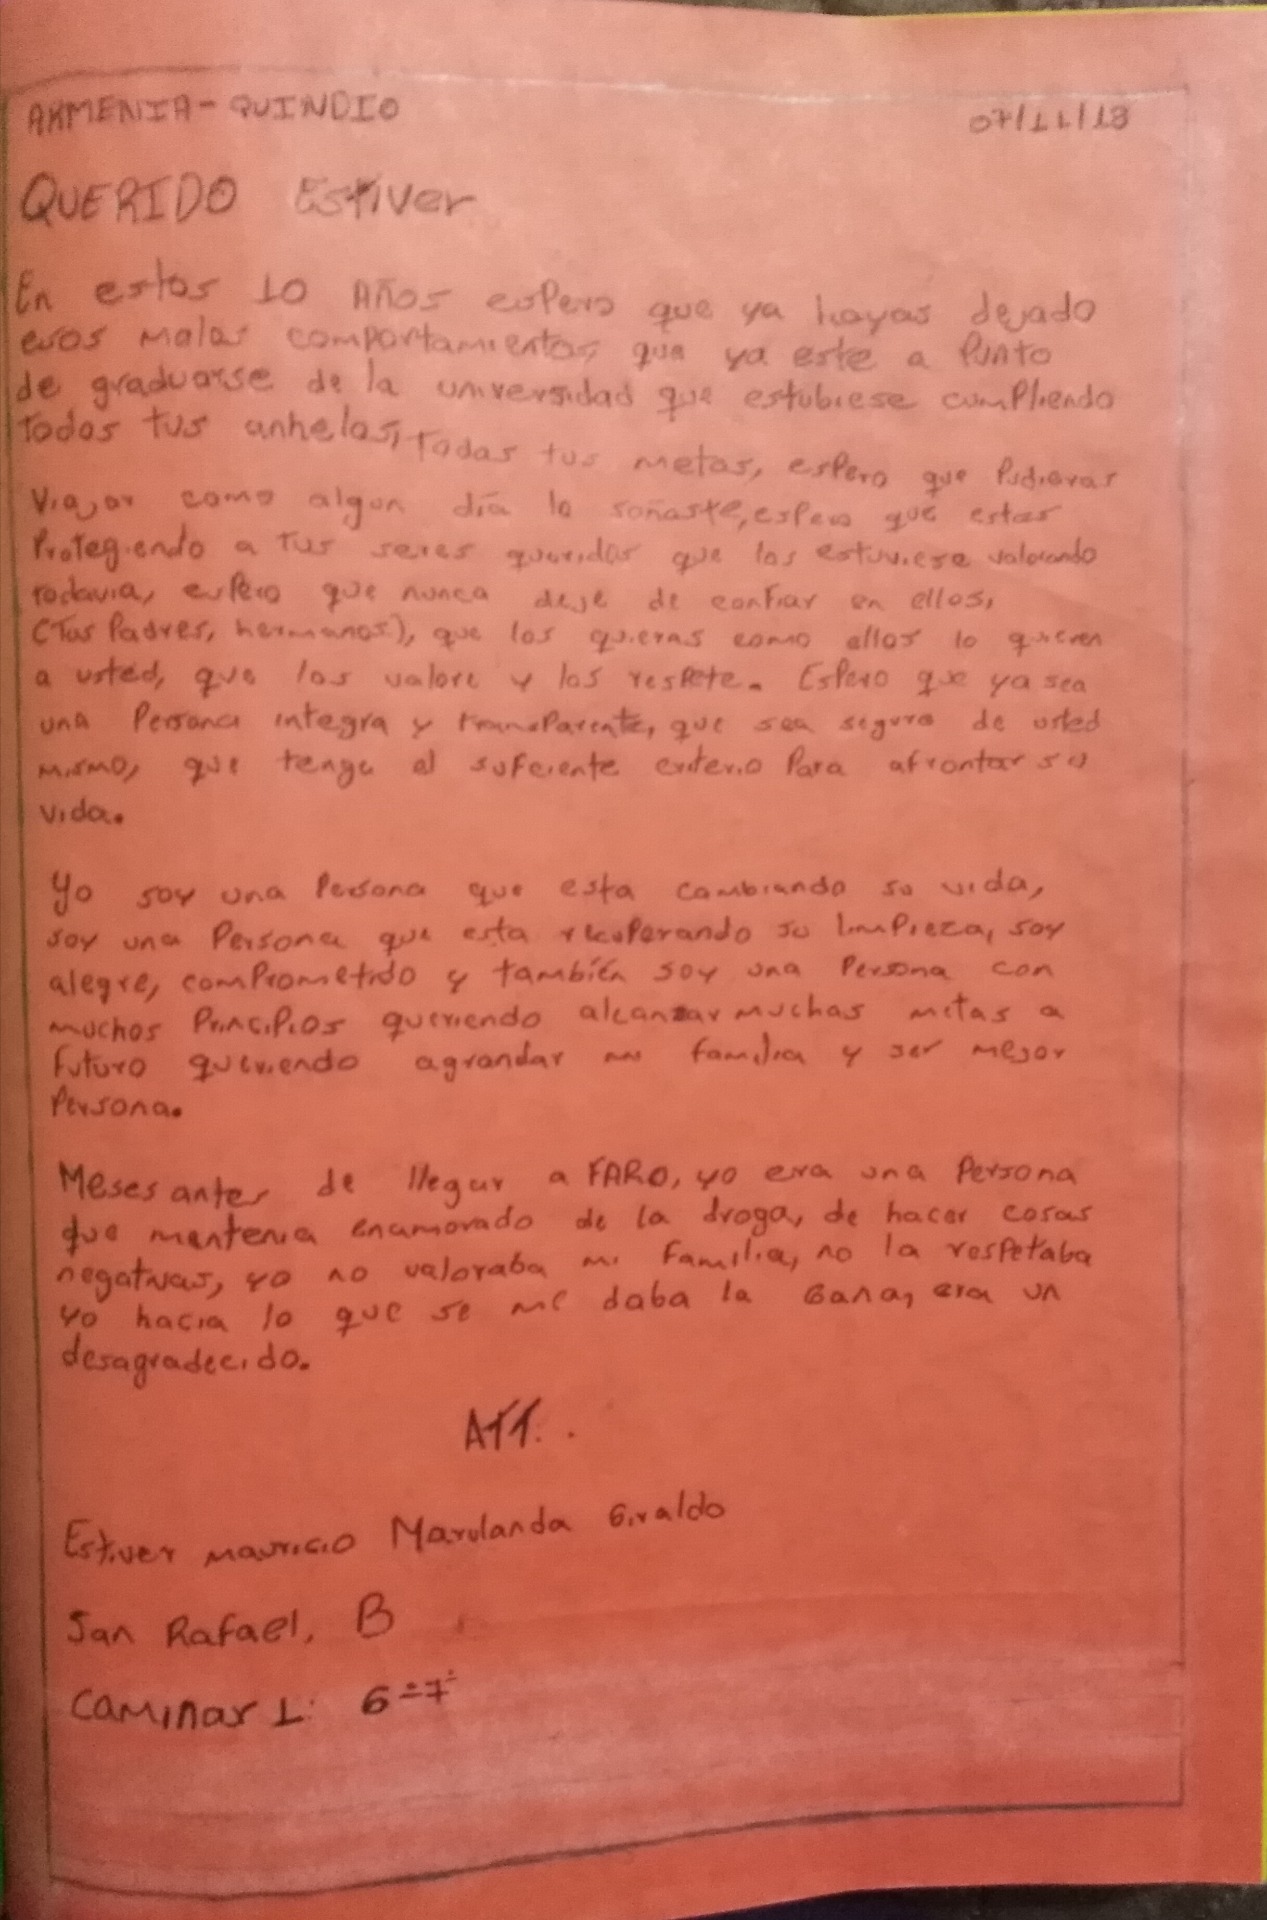 ARMENIA-QUINDIO 07/11/18
QUERIDO Estiver
En estos 10 Años espero que ya hayas dejado
esos malos comportamientos, que ya este a Punto
de graduarse de la universidad que estubiese cumPliendo
todos tus anhelos, todas tus metas, espero que Pudieras
Viajar como algun día lo soñaste, espero que estas
Protegiendo a tus seres queridos que los estuviese valorando
todavia, espero que nunca deje de confiar en ellos,
(Tus Padres, hermanos), que los quieras como ellos lo quieren
a usted, que los valore y los resPete. Espero que ya sea
una Persona integra y transParente, que sea segura de usted
mismo, que tenga el suficiente criterio Para afrontar su
vida.
Yo soy una Persona que esta cambiando su vida,
soy una Persona que esta recuPerando su limPieza, soy
alegre, comPrometido y también soy una Persona con
muchos PrinciPios queriendo alcanzar muchas metas a
futuro queriendo agrandar mi familia y ser mejor
Persona.
Meses antes de llegar a FARO, yo era una Persona
que mantenia enamorado de la droga, de hacer cosas
negativas, yo no valoraba mi familia, no la respetaba
yo hacia lo que se me daba la Gana, era un
desagradecido.
ATT.
Estiver Mauricio Marulanda Giraldo
San Rafael, B
Caminar 1: 6-7